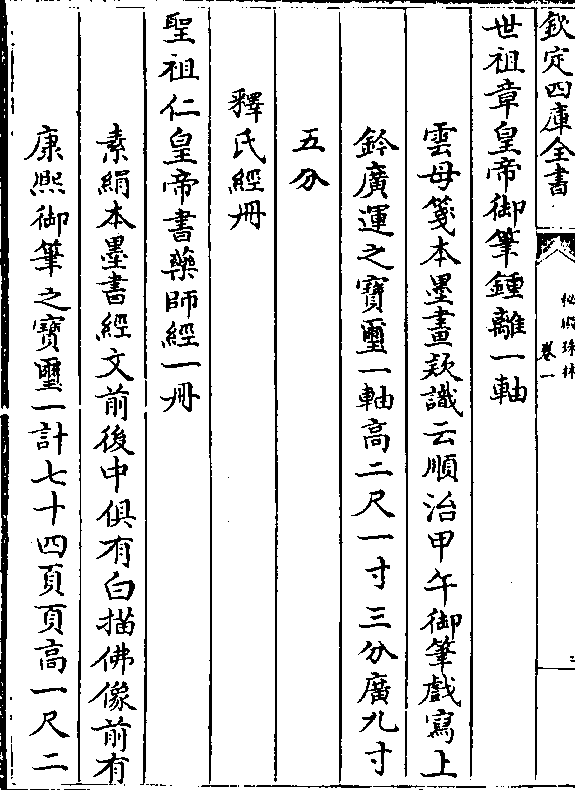 欽定四庫全書
秘殿珠林
卷一
世祖章皇帝御筆鍾離一軸
雲母箋本墨畫款識云順治甲午御筆戲寫上
鈐廣運之寶璽一軸高二尺一寸三分廣九寸
五分
釋氏經冊
聖祖仁皇帝書藥師經一冊
素絹本墨書經文前後中俱有白描佛像前有
康熙御筆之寶璽一計七十四頁頁高一尺二